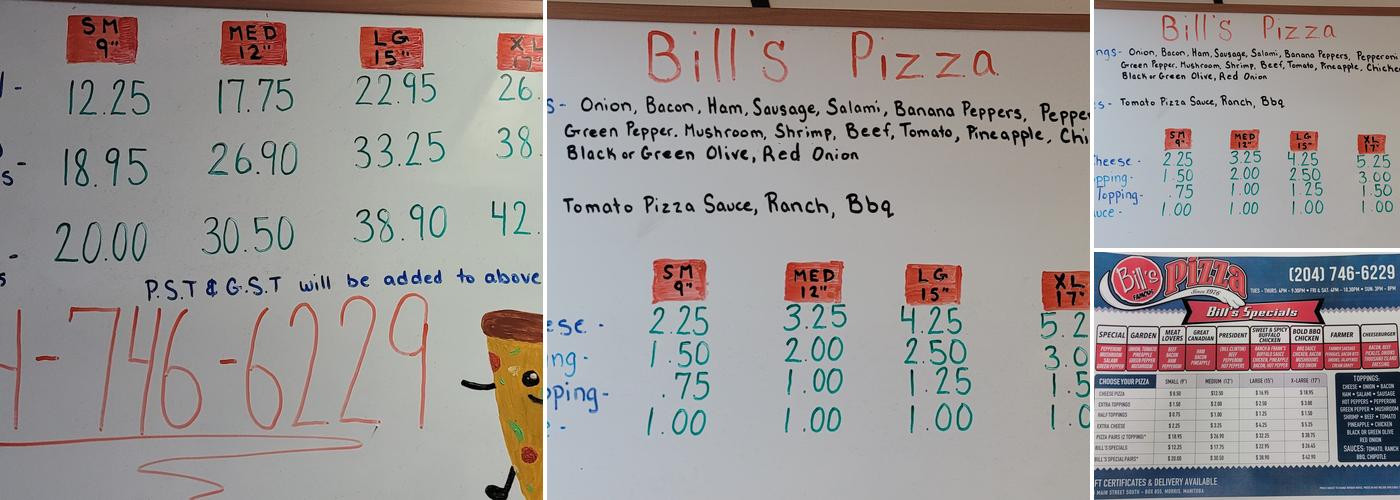 SM 9" MED 12" LG 15" XL 17"
- 12.25 17.75 22.95 26.
s- 18.95 26.90 33.25 38.
- 20.00 30.50 38.90 42.
s P.S.T & G.S.T will be added to above
-746-6229
Bill's Pizza
s- Onion, Bacon, Ham, Sausage, Salami, Banana Peppers, Pepper
Green Pepper. Mushroom, Shrimp, Beef, Tomato, Pineapple, Chi
Black or Green Olive, Red Onion
Tomato Pizza Sauce, Ranch, Bbq
SM 9" MED 12" LG 15" XL 17"
ese - 2.25 3.25 4.25 5.2
ng- 1.50 2.00 2.50 3.0
pping- .75 1.00 1.25 1.5
- 1.00 1.00 1.00 1.0
Bill's Pizza
ngs- Onion, Bacon, Ham, Sausage, Salami, Banana Peppers, Pepperoni
Green Pepper. Mushroom, Shrimp, Beef, Tomato, Pineapple, Chicken
Black or Green Olive, Red Onion
s- Tomato Pizza Sauce, Ranch, Bbq
SM 9" MED 12" LG 15" XL 17"
Cheese - 2.25 3.25 4.25 5.25
pping- 1.50 2.00 2.50 3.00
Topping- .75 1.00 1.25 1.50
uce - 1.00 1.00 1.00 1.00
Bill's FAMOUS Pizza Since 1976
(204) 746-6229
TUES - THURS: 4PM - 9:30PM • FRI & SAT: 4PM - 10:30PM • SUN: 3PM - 8PM
Bill's Specials
SPECIAL GARDEN MEAT LOVERS GREAT CANADIAN PRESIDENT SWEET & SPICY BUFFALO CHICKEN BOLD BBQ CHICKEN FARMER CHEESEBURGER
PEPPERONI MUSHROOM SALAMI GREEN PEPPER
ONION, TOMATO PINEAPPLE GREEN PEPPER MUSHROOM
BEEF BACON HAM PEPPERONI
HAM BACON PINEAPPLE
(BILL CLINTON) BEEF PEPPERONI HOT PEPPERS
CHOOSE YOUR PIZZA SMALL (9") MEDIUM (12") LARGE (15") X-LARGE (17")
CHEESE PIZZA $ 8.50 $12.50 $ 16.95 $ 18.95
EXTRA TOPPINGS $ 1.50 $ 2.00 $ 2.50 $ 3.00
HALF TOPPINGS $ 0.75 $ 1.00 $ 1.25 $ 1.50
EXTRA CHEESE $ 2.25 $ 3.25 $ 4.25 $ 5.25
PIZZA PAIRS (2 TOPPING)* $ 18.95 $ 26.90 $ 32.25 $ 38.75
BILL'S SPECIALS $ 12.25 $ 17.75 $ 22.95 $ 26.45
BILL'S SPECIAL PAIRS* $ 20.00 $ 30.50 $ 38.90 $ 42.90
TOPPINGS:
CHEESE • ONION • BACON
HAM • SALAMI • SAUSAGE
HOT PEPPERS • PEPPERONI
GREEN PEPPER • MUSHROOM
SHRIMP • BEEF • TOMATO
PINEAPPLE • CHICKEN
BLACK OR GREEN OLIVE
RED ONION
SAUCES: TOMATO, RANCH
BBQ, CHIPOTLE
FT CERTIFICATES & DELIVERY AVAILABLE
MAIN STREET SOUTH - BOX 855, MORRIS, MANITOBA